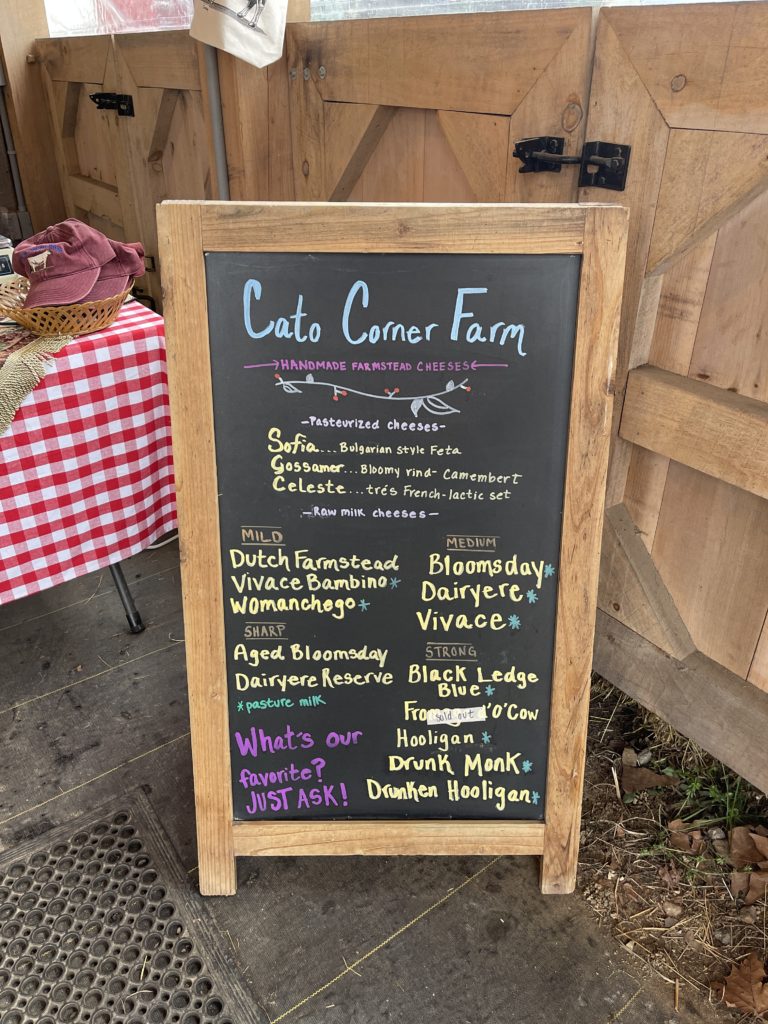 Cato Corner Farm
HANDMADE FARMSTEAD CHEESES
-Pasteurized cheeses-
Sofia... Bulgarian style Feta
Gossamer... Bloomy rind- Camembert
Celeste... trés French-lactic set
-Raw milk cheeses-
MILD
Dutch Farmstead
Vivace Bambino*
Womanchego*
SHARP
Aged Bloomsday
Dairyere Reserve
*pasture milk
What's our
favorite?
JUST ASK!
MEDIUM
Bloomsday*
Dairyere*
Vivace*
STRONG
Black Ledge
Blue*
sold out 'O'Cow
Hooligan*
Drunk Monk*
Drunken Hooligan*